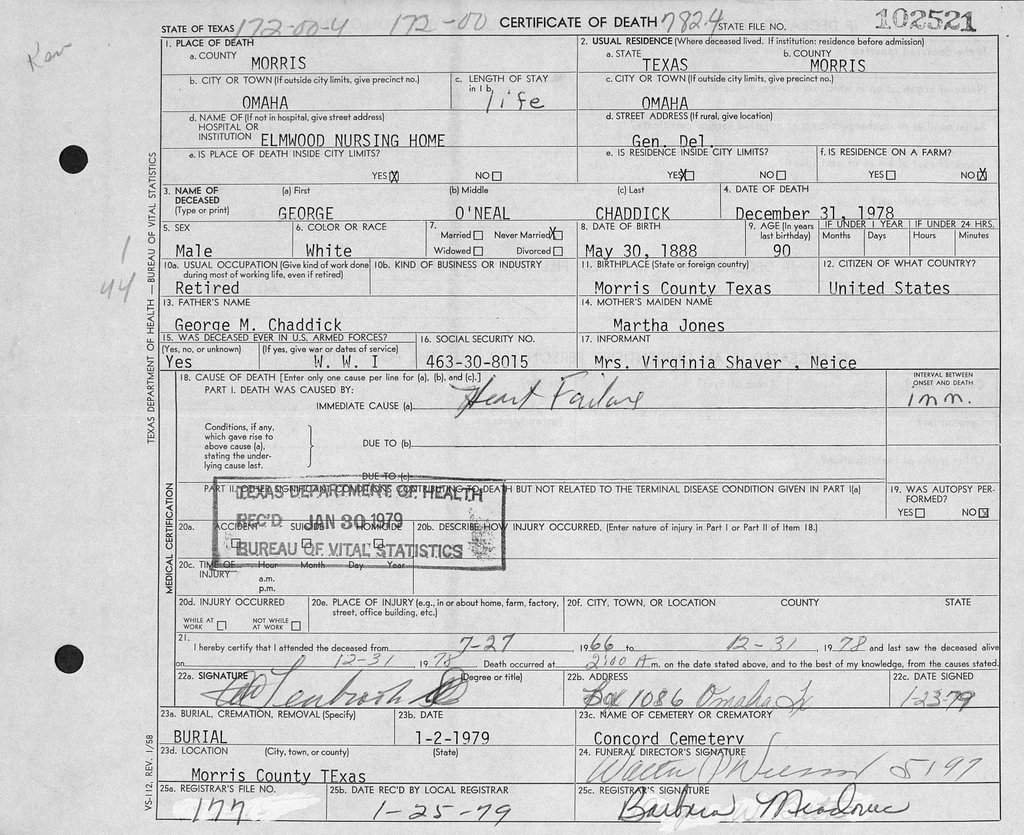 STATE OF TEXAS 172-00-4 172-00 CERTIFICATE OF DEATH 7824 STATE FILE NO. 102521
1. PLACE OF DEATH
a. COUNTY
MORRIS
2. USUAL RESIDENCE (Where deceased lived. If institution: residence before admission)
a. STATE b. COUNTY
TEXAS MORRIS
b. CITY OR TOWN (If outside city limits, give precinct no.)
OMAHA
c. LENGTH OF STAY
in 1 b.
life
c. CITY OR TOWN (If outside city limits, give precinct no.)
OMAHA
d. NAME OF (If not in hospital, give street address)
HOSPITAL OR
INSTITUTION ELMWOOD NURSING HOME
d. STREET ADDRESS (If rural, give location)
Gen. Del.
e. IS PLACE OF DEATH INSIDE CITY LIMITS?
YES X NO
e. IS RESIDENCE INSIDE CITY LIMITS?
YES X NO
f. IS RESIDENCE ON A FARM?
YES NO X
3. NAME OF
DECEASED
(Type or print)
(a) First (b) Middle (c) Last
GEORGE O'NEAL CHADDICK
4. DATE OF DEATH
December 31, 1978
5. SEX
Male
6. COLOR OR RACE
White
7.
Married Never Married X
Widowed Divorced
8. DATE OF BIRTH
May 30, 1888
9. AGE (In years
last birthday)
90
IF UNDER 1 YEAR
Months Days
IF UNDER 24 HRS.
Hours Minutes
10a. USUAL OCCUPATION (Give kind of work done
during most of working life, even if retired)
Retired
10b. KIND OF BUSINESS OR INDUSTRY
11. BIRTHPLACE (State or foreign country)
Morris County Texas
12. CITIZEN OF WHAT COUNTRY?
United States
13. FATHER'S NAME
George M. Chaddick
14. MOTHER'S MAIDEN NAME
Martha Jones
15. WAS DECEASED EVER IN U.S. ARMED FORCES?
(Yes, no, or unknown) (If yes, give war or dates of service)
Yes W. W. I
16. SOCIAL SECURITY NO.
463-30-8015
17. INFORMANT
Mrs. Virginia Shaver , Neice
18. CAUSE OF DEATH [Enter only one cause per line for (a), (b), and (c).]
PART I. DEATH WAS CAUSED BY:
IMMEDIATE CAUSE (a) Heart Failure
INTERVAL BETWEEN
ONSET AND DEATH
1 mn.
Conditions, if any,
which gave rise to
above cause (a),
stating the under-
lying cause last.
DUE TO (b)
DUE TO (c)
PART II. OTHER SIGNIFICANT CONDITIONS CONTRIBUTING TO DEATH BUT NOT RELATED TO THE TERMINAL DISEASE CONDITION GIVEN IN PART I(a)
19. WAS AUTOPSY PER-
FORMED?
YES NO X
TEXAS DEPARTMENT OF HEALTH
REC'D JAN 30 1979
BUREAU OF VITAL STATISTICS
20a. ACCIDENT SUICIDE HOMICIDE
20b. DESCRIBE HOW INJURY OCCURRED. (Enter nature of injury in Part I or Part II of Item 18.)
20c. TIME OF
INJURY
Hour Month Day Year
a.m.
p.m.
20d. INJURY OCCURRED
WHILE AT
WORK
NOT WHILE
AT WORK
20e. PLACE OF INJURY (e.g., in or about home, farm, factory,
street, office building, etc.)
20f. CITY, TOWN, OR LOCATION COUNTY STATE
21.
I hereby certify that I attended the deceased from 7-27 1966 to 12-31 1978 and last saw the deceased alive
on 12-31 1978. Death occurred at 2:00 A m. on the date stated above, and to the best of my knowledge, from the causes stated.
22a. SIGNATURE (Degree or title)
22b. ADDRESS
Bx 1086 Omaha Tx
22c. DATE SIGNED
1-23-79
23a. BURIAL, CREMATION, REMOVAL (Specify)
BURIAL
23b. DATE
1-2-1979
23c. NAME OF CEMETERY OR CREMATORY
Concord Cemetery
23d. LOCATION (City, town, or county) (State)
Morris County TExas
24. FUNERAL DIRECTOR'S SIGNATURE
5197
25a. REGISTRAR'S FILE NO.
177
25b. DATE REC'D BY LOCAL REGISTRAR
1-25-79
25c. REGISTRAR'S SIGNATURE
Barbara
TEXAS DEPARTMENT OF HEALTH — BUREAU OF VITAL STATISTICS
MEDICAL CERTIFICATION
VS-112, REV. 1/58
1
44